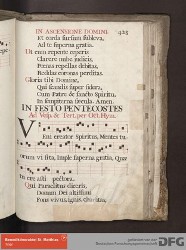 IN ASCENSIONE DOMINI. 425
Et corda sursum subleva,
Ad te superna gratia.
Ut cum repente coeperis
Clarere nube judicis,
Poenas repellas debitas,
Reddas coronas perditas.
Gloria tibi Domine,
Qui scandis super sidera,
Cum Patre & sancto Spiritu,
In sempiterna saecula. Amen.
IN FESTO PENTECOSTES
Ad Vesp. & Tert. per Oct. Hym.
Veni creator Spiritus, Mentes tu-
orum visita, Imple superna gratia, Quae
tu cre asti pectora.
Qui Paraclitus diceris,
Donum Dei altissimi
Fons vivus, ignis
gefördert von der
DFG